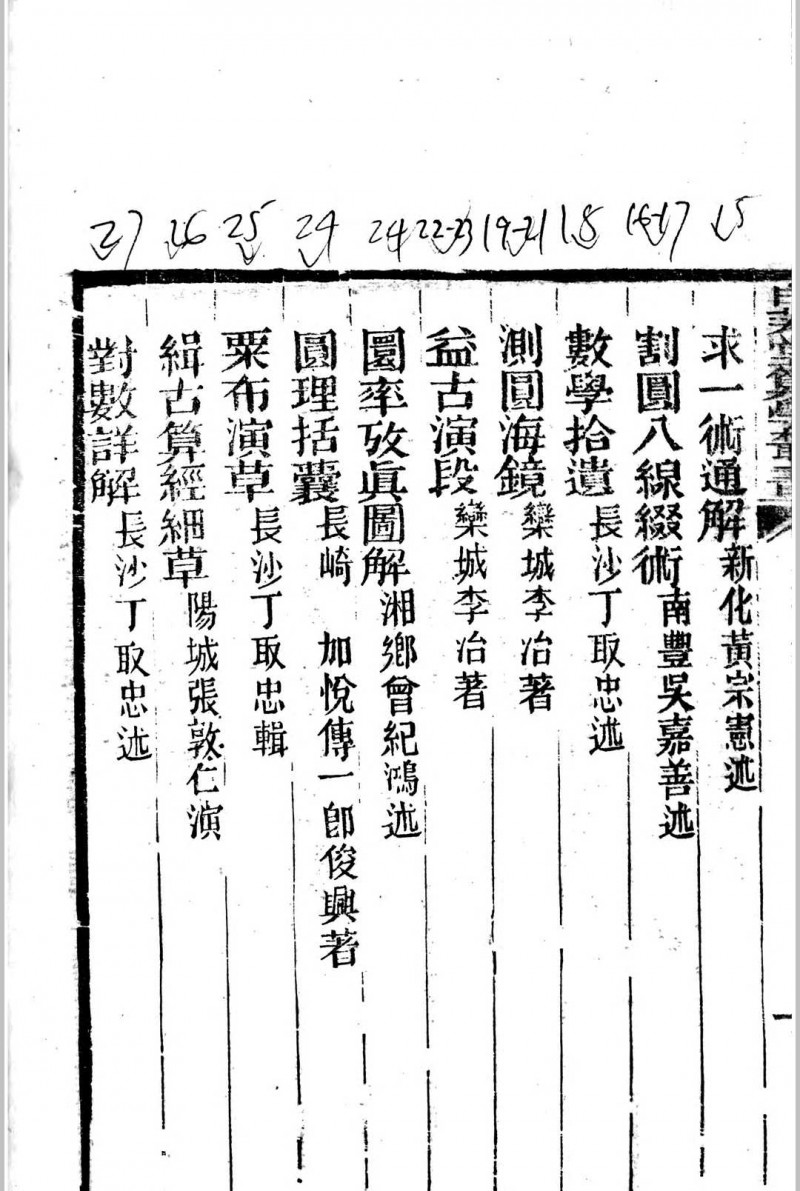 27 26 25 24 24 22-23 19-21 18 16-17 15
求一術通解 新化黃宗憲述
割圓八線綴術 南豐吳嘉善述
數學拾遺 長沙丁取忠述
測圓海鏡 欒城李冶著
益古演段 欒城李冶著
圜率攷眞圖解 湘鄉曾紀鴻述
圓理括囊 長崎 加悅傳一郎俊興著
粟布演草 長沙丁取忠輯
緝古算經細草 陽城張敦仁演
對數詳解 長沙丁取忠述
一